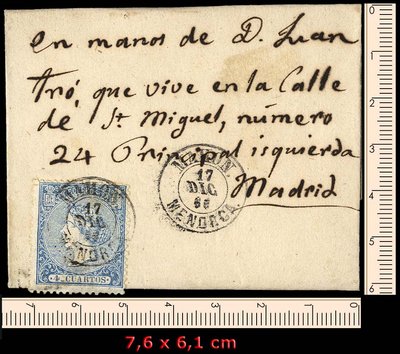 en manos de D. Juan
Tró, que vive en la Calle
de St Miguel, número
24 Principal isquierda
Madrid
MAHON.
17
DIC
66
MENORCA.
MAHON
17
DIC
MENOR
4 CUARTOS
0 1 2 3 4 5 6
7 6 5 4 3 2 1 0
7,6 x 6,1 cm